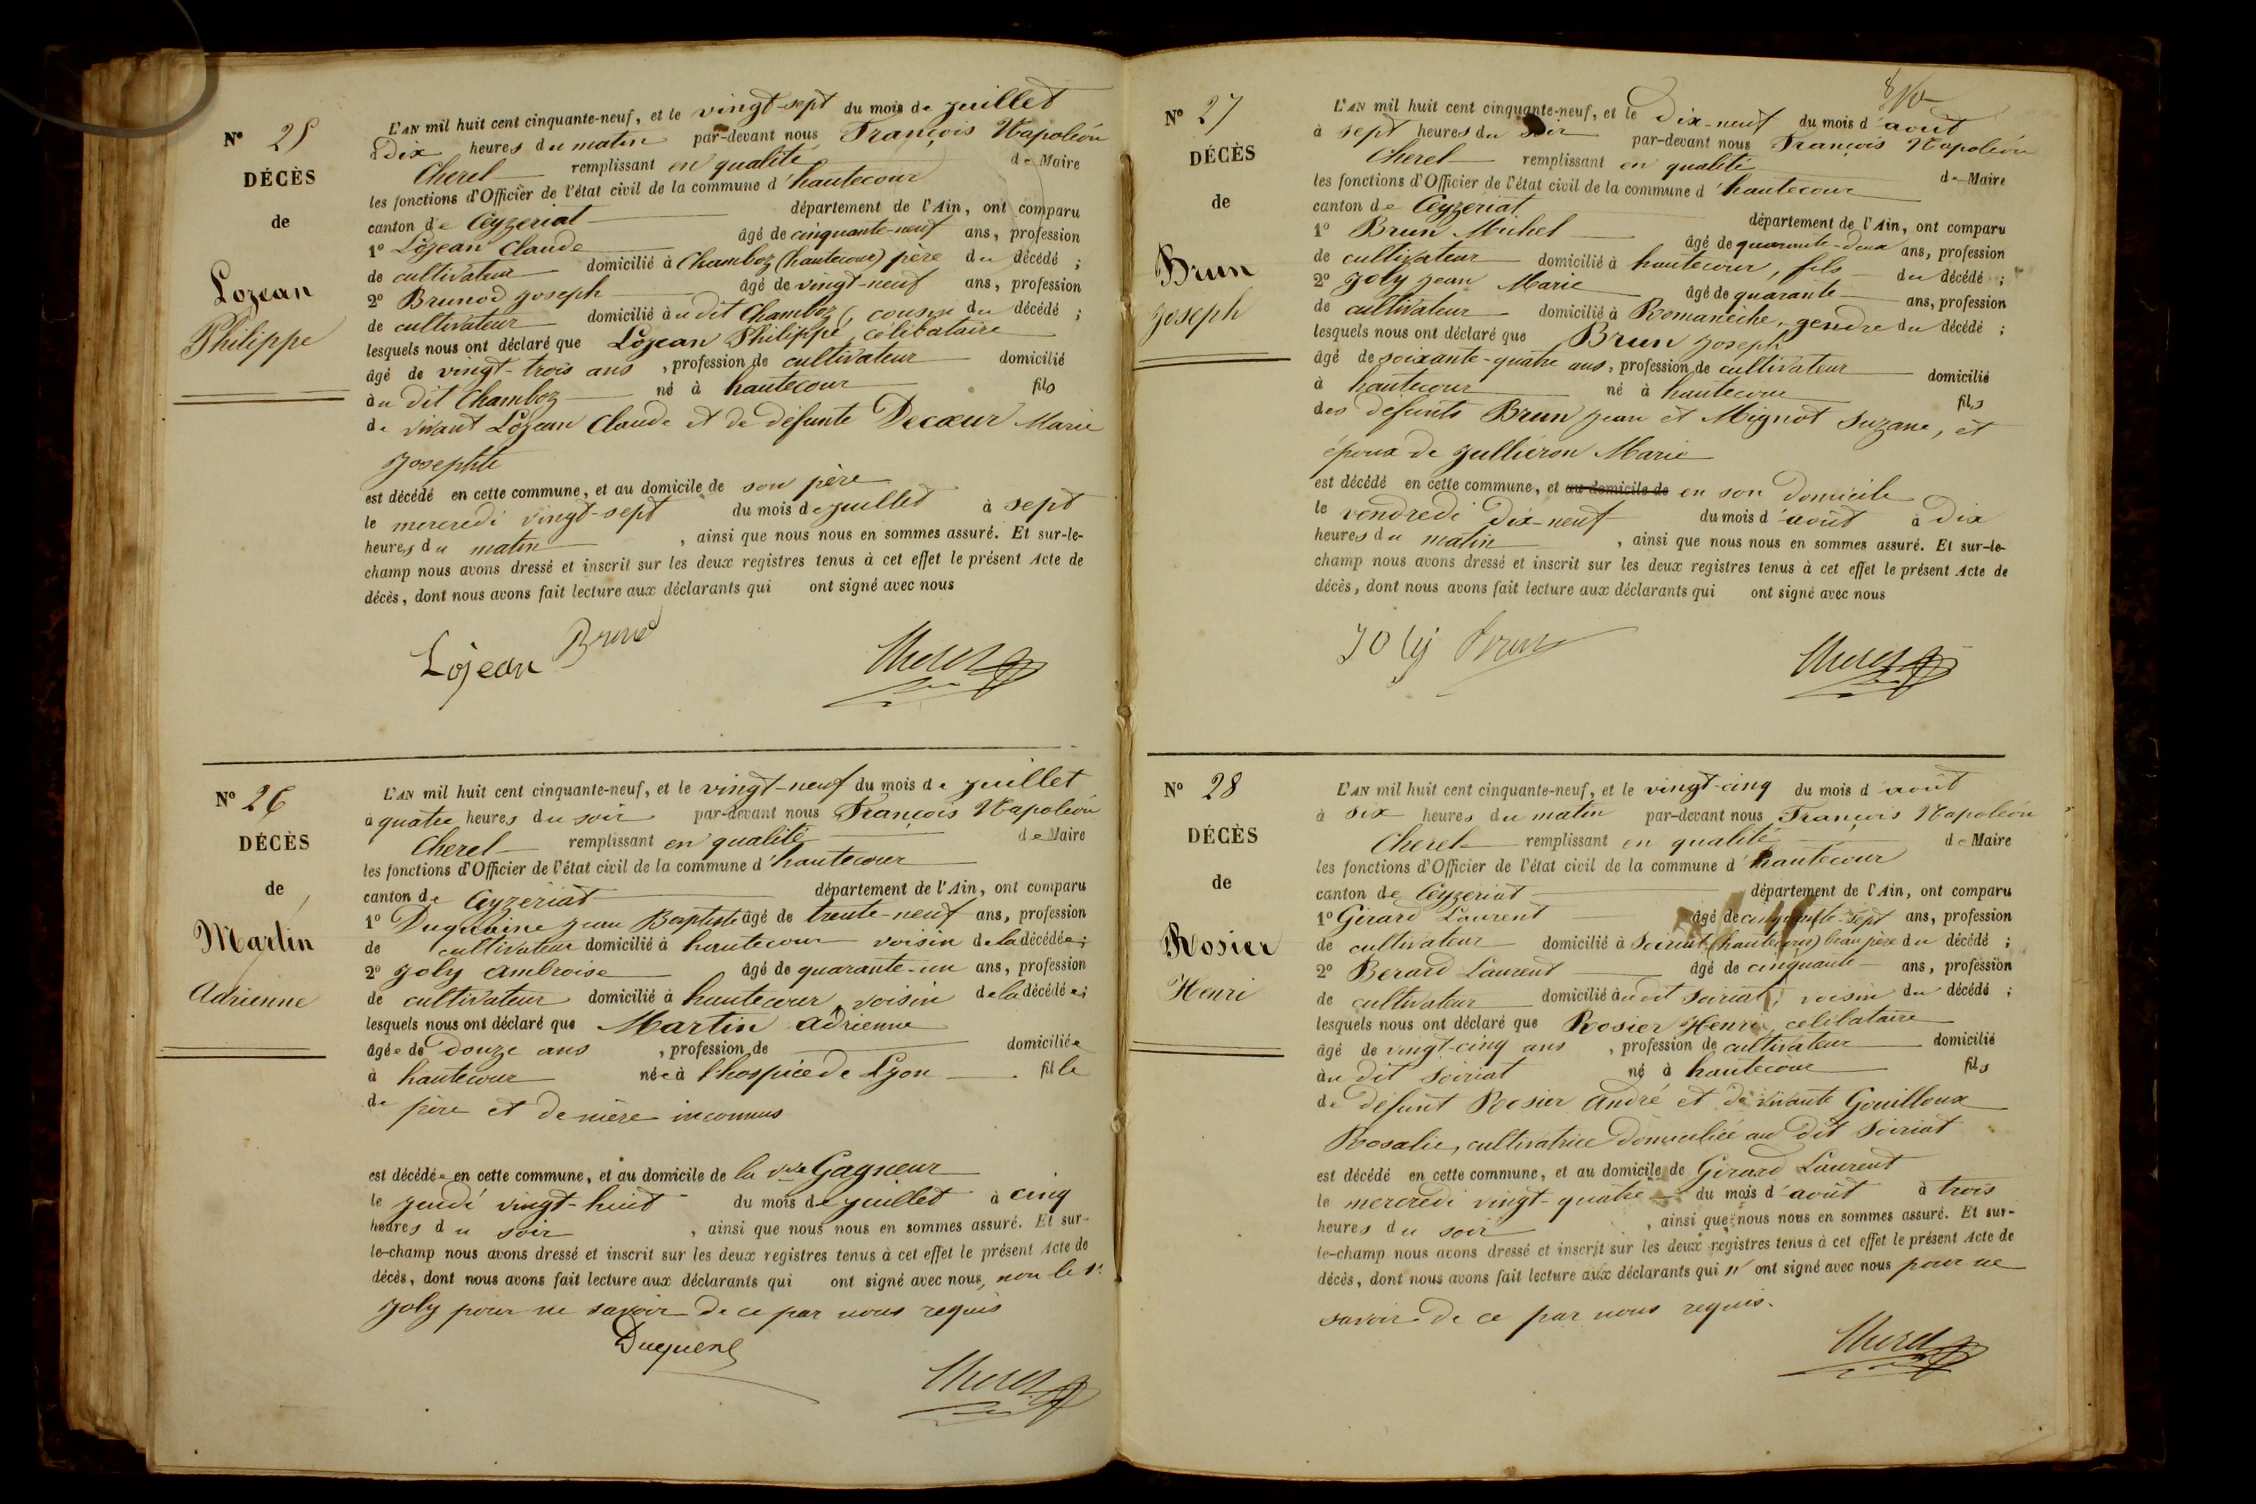 N° 25
DÉCÈS
de
Lozean
Philippe
L'AN mil huit cent cinquante-neuf, et le vingt-sept du mois de juillet
à dix heures du matin par-devant nous François Napoléon
Cherel remplissant en qualité de Maire
les fonctions d'Officier de l'état civil de la commune d'hautecour
canton de Ceyzeriat département de l'Ain, ont comparu
1° Lozean Claude âgé de cinquante-neuf ans, profession
de cultivateur domicilié à Chamboz (hautecour) père du décédé ;
2° Brunod joseph âgé de vingt-neuf ans, profession
de cultivateur domicilié à u dit Chamboz, cousin du décédé ;
lesquels nous ont déclaré que Lozean Philippe, célibataire
âgé de vingt-trois ans , profession de cultivateur domicilié
à u dit Chamboz né à hautecour fils
de vivant Lozean Claude et de défunte Decœur Marie
Josephte
est décédé en cette commune, et au domicile de son père
le mercredi vingt-sept du mois de juillet à sept
heures du matin , ainsi que nous nous en sommes assuré. Et sur-le-
champ nous avons dressé et inscrit sur les deux registres tenus à cet effet le présent Acte de
décès, dont nous avons fait lecture aux déclarants qui ont signé avec nous
Lojean Brunod Cherel
N° 26
DÉCÈS
de
Martin
Adrienne
L'AN mil huit cent cinquante-neuf, et le vingt-neuf du mois de juillet
à quatre heures du soir par-devant nous François Napoléon
Cherel remplissant en qualité de Maire
les fonctions d'Officier de l'état civil de la commune d'hautecour
canton de Ceyzériat département de l'Ain, ont comparu
1° Jean Baptiste âgé de trente-neuf ans, profession
de cultivateur domicilié à hautecour voisin de la décédée ;
2° Joly Ambroise âgé de quarante-un ans, profession
de cultivateur domicilié à hautecour, voisin de la décédée ;
lesquels nous ont déclaré que Martin Adrienne
âgée de douze ans , profession de domiciliée
à hautecour née à l'hospice de Lyon fille
de père et de mère inconnus
est décédée en cette commune, et au domicile de la vve Gagneur
le jeudi vingt-huit du mois de juillet à cinq
heures du soir , ainsi que nous nous en sommes assuré. Et sur-
le-champ nous avons dressé et inscrit sur les deux registres tenus à cet effet le présent Acte de
décès, dont nous avons fait lecture aux déclarants qui ont signé avec nous, non le sr
Joly pour ne savoir de ce par nous requis
Cherel
N° 27
DÉCÈS
de
Brun
Joseph
L'AN mil huit cent cinquante-neuf, et le dix-neuf du mois d'août
à sept heures du soir par-devant nous François Napoléon
Cherel remplissant en qualité de Maire
les fonctions d'Officier de l'état civil de la commune d'hautecour
canton de Ceyzeriat département de l'Ain, ont comparu
1° Brun Michel âgé de quarante-deux ans, profession
de cultivateur domicilié à hautecour, fils du décédé ;
2° Joly Jean Marie âgé de quarante ans, profession
de cultivateur domicilié à Romanèche, gendre du décédé ;
lesquels nous ont déclaré que Brun Joseph
âgé de soixante-quatre ans, profession de cultivateur domicilié
à hautecour né à hautecour fils
des défunts Brun Jean et Mignot Suzane, et
époux de Jullieron Marie
est décédé en cette commune, et au domicile de en son domicile
le vendredi dix-neuf du mois d'août à dix
heures du matin , ainsi que nous nous en sommes assuré. Et sur-le-
champ nous avons dressé et inscrit sur les deux registres tenus à cet effet le présent Acte de
décès, dont nous avons fait lecture aux déclarants qui ont signé avec nous
Joly Brun Cherel
N° 28
DÉCÈS
de
Rosier
Henri
L'AN mil huit cent cinquante-neuf, et le vingt-cinq du mois d'août
à six heures du matin par-devant nous François Napoléon
Cherel remplissant en qualité de Maire
les fonctions d'Officier de l'état civil de la commune d'hautecour
canton de Ceyzeriat département de l'Ain, ont comparu
1° Girard Laurent âgé de cinquante-sept ans, profession
de cultivateur domicilié à Soiriat (hautecour) beau père du décédé ;
2° Berard Laurent âgé de cinquante ans, profession
de cultivateur domicilié à u dit Soiriat, voisin du décédé ;
lesquels nous ont déclaré que Rosier Henri, célibataire
âgé de vingt-cinq ans , profession de cultivateur domicilié
à u dit Soiriat né à hautecour fils
de défunt Rosier André et de vivante Gouilloux
Rosalie, cultivatrice domiciliée au dit Soiriat
est décédé en cette commune, et au domicile de Girard Laurent
le mercredi vingt-quatre du mois d'août à trois
heures du soir , ainsi que nous nous en sommes assuré. Et sur-
le-champ nous avons dressé et inscrit sur les deux registres tenus à cet effet le présent Acte de
décès, dont nous avons fait lecture aux déclarants qui n'ont signé avec nous pour ne
savoir de ce par nous requis.
Cherel